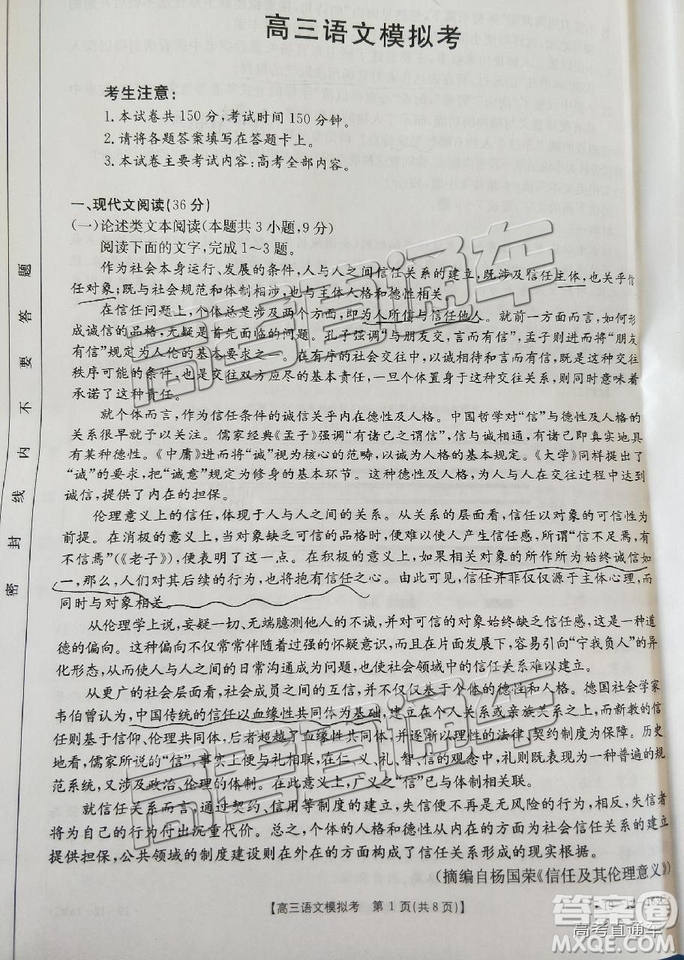 高三语文模拟考
考生注意:
1.本试卷共150分,考试时间150分钟。
2.请将各题答案填写在答题卡上。
3.本试卷主要考试内容:高考全部内容。
一、现代文阅读(36分)
(一)论述类文本阅读(本题共3小题,9分)
阅读下面的文字,完成1~3题。
作为社会本身运行、发展的条件,人与人之间信任关系的建立,既涉及信任主体,也关乎信
任对象;既与社会规范和体制相涉,也与主体人格和德性相关。
在信任问题上,个体总是涉及两个方面,即为人所信与信任他人。就前一方面而言,如何形
成诚信的品格,无疑是首先面临的问题。孔子强调“与朋友交,言而有信”,孟子则进而将“朋
友有信”规定为人伦的基本要求之一。在有序的社会交往中,以诚相待和言而有信,既是这种交往
秩序可能的条件,也是交往双方应尽的基本责任,一旦个体置身于这种交往关系,则同时意味着
承诺了这种责任。
就个体而言,作为信任条件的诚信关乎内在德性及人格。中国哲学对“信”与德性及人格的
关系很早就予以关注。儒家经典《孟子》强调“有诸己之谓信”,“信”与“有诸己”即真实地具
有某种德性。《中庸》进而将“诚”视为核心的范畴,以诚信为人格的基本规定。《大学》同样提出了
“诚”的要求,把“诚意”规定为修身的基本环节。这种德性及人格,为人在交往过程中讲求
诚信,提供了内在的担保。
伦理意义上的信任,体现于人与人之间的关系。从关系的层面看,信任以对象的可信性为
前提。在消极的意义上,当对象缺乏可信的品格时,便难以使人产生信任感,所谓“信不足焉,有
不信焉”(《老子》),便表明了这一点。在积极的意义上,如果相关对象的所作所为始终诚信如
一,那么,人们对其后续的行为,也将抱有信任之心。由此可见,信任并非仅仅源于主体心理,而
同时与对象相关。
从伦理学上说,妄疑一切、无端臆测他人的不诚,并对可信的对象始终缺乏信任感,这是一种道
德的偏向。这种偏向不仅常常伴随着过强的怀疑意识,而且在片面发展下,容易引向“宁我负人”的异
化形态,从而使人与人之间的日常沟通成为问题,也使社会领域中的信任关系难以建立。
从更广的社会层面看,社会成员之间的互信,并不仅仅基于个体的德性和人格。德国社会学家
韦伯曾认为,中国传统的信任以血缘性共同体为基础,建立在个人关系或亲族关系之上,而新教的信任
则基于信仰、伦理共同体,后者超越了血缘性共同体,并逐渐以理性的法律、契约制度为保障。与之
可知,儒家所说的“信”,事实上便与礼相联,在仁、义、礼、智、信的观念中,礼则既表现为一种普遍的规
范系统,又涉及政治、伦理的体制。在此意义上,广义之“信”已与体制相关联。
就信任关系而言,通过契约、信用等制度的建立,失信便不再是无风险的行为,相反,失信者
将为自己的行为付出沉重代价。总之,个体的人格和德性从内在的方面为社会信任关系的建立
提供担保,公共领域的制度建设则在外在的方面构成了信任关系形成的现实根据。
(摘编自杨国荣《信任及其伦理意义》)
【高三语文模拟考 第1页(共8页)】
密 封 线 内 不 要 答 题
高考直通车
高考直通车
答案圈
高考直通车
MXQE.COM